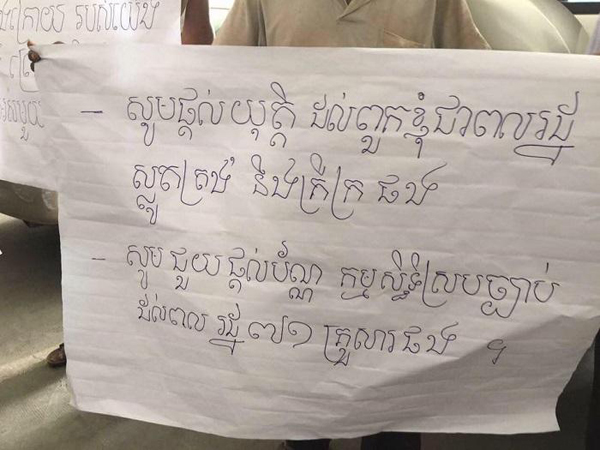 ក្រោយ របស់យើង
- សូមផ្តល់យុត្តិ ដល់ពួកខ្ញុំជាពលរដ្ឋ
ស្លូតត្រង់ និងក្រីក្រ ផង
- សូម ជួយ ផ្តល់ប័ណ្ណ កម្មសិទ្ធិស្របច្បាប់
ដល់ពល រដ្ឋ ៧១ គ្រួសារ ផង ។